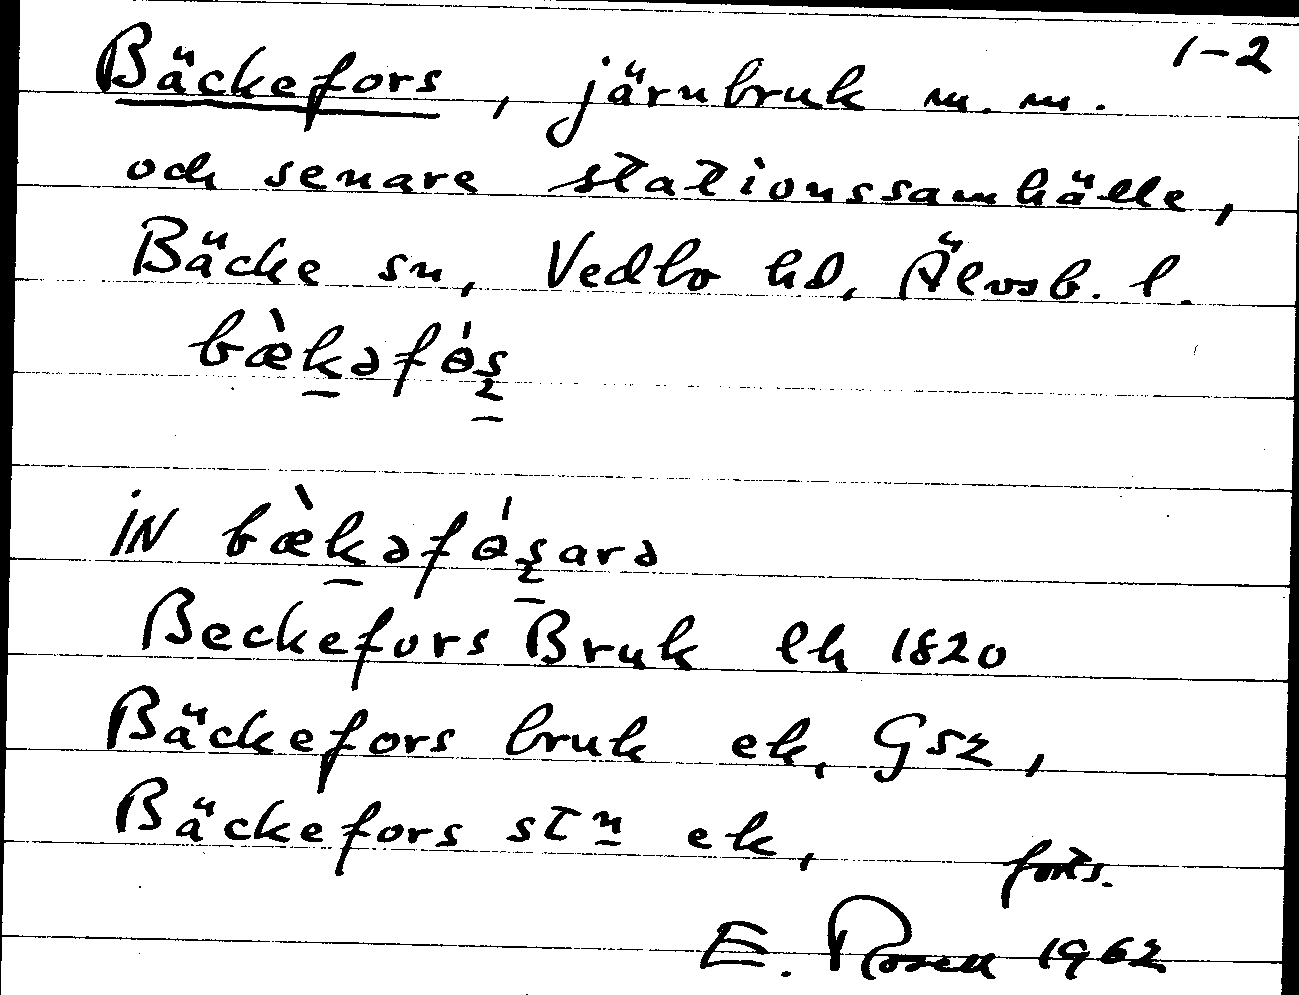 1-2
Bäckefors, järnbruk m.m.
och senare stationssamhälle,
Bäcke sn, Vedbo hd, Älvsb. l.
bæ̀k̠əfɵ́s̠
IN bæ̀k̠əfɵ́s̠arə
Beckefors Bruk lh 1820
Bäckefors bruk ek, Gsz,
Bäckefors stn ek,
forts.
E. Rosell 1962